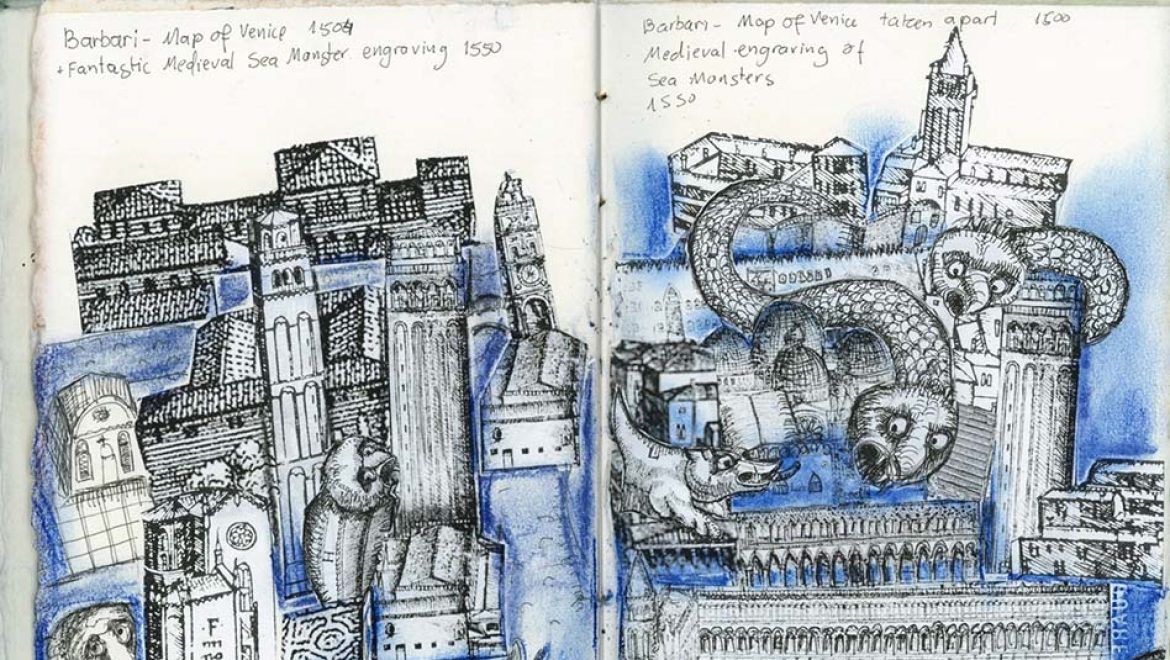 Barbari - Map of Venice 1504
+ Fantastic Medieval Sea Monster engraving 1550
Barbari - Map of Venice taken apart 1500
Medieval engraving of
Sea Monsters
1550
F